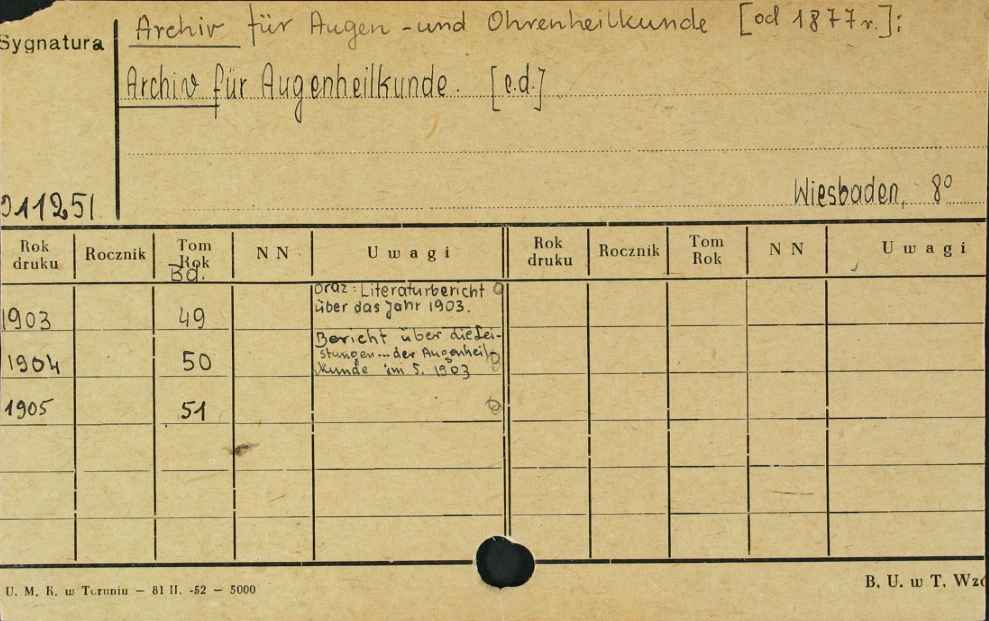 Archiv für Augen - und Ohrenheilkunde [od 1877 r.]:
Sygnatura
Archiv für Augenheilkunde. [e.d.]
Wiesbaden, 8°
011251
Rok druku Rocznik Tom Rok Bd. N N U w a g i Rok druku Rocznik Tom Rok N N U w a g i
oraz: Literaturbericht
über das Jahr 1903.
1903 49
Bericht über die Lei-
stungen... der Augenheil-
kunde im J. 1903
1904 50
1905 51
U. M. K. w Toruniu — 81 II. -52 — 5000
B. U. w T.